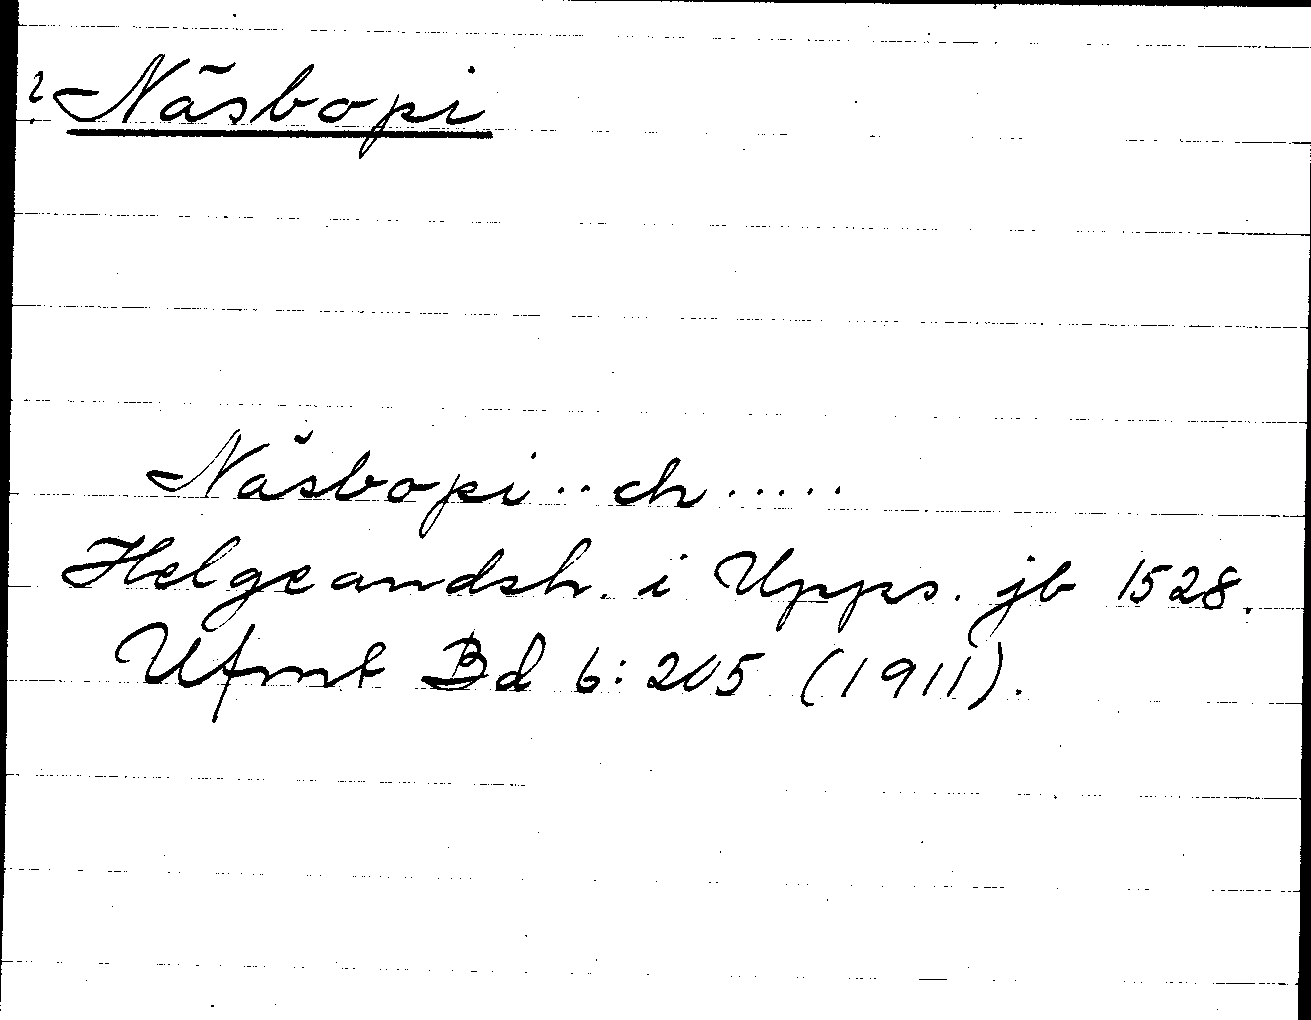 ? Näsbopi
Näsbopi..ch.....
Helgeandsh. i Upps. jb 1528.
Ufmt Bd 6:205 (1911).